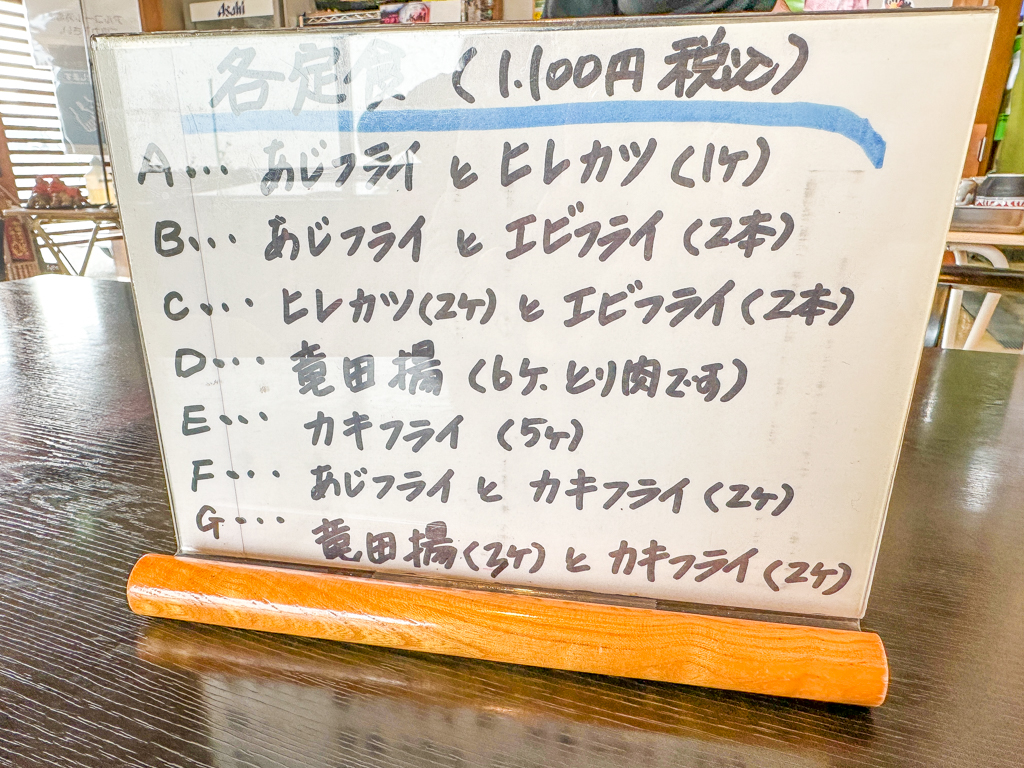 Asahi
各定食 (1.100円 税込)
A... あじフライ と ヒレカツ (1ケ)
B... あじフライ と エビフライ (2本)
C... ヒレカツ(2ケ) と エビフライ (2本)
D... 竜田揚 (6ケ. とり肉です)
E... カキフライ (5ケ)
F... あじフライ と カキフライ (2ケ)
G... 竜田揚 (3ケ) と カキフライ (2ケ)